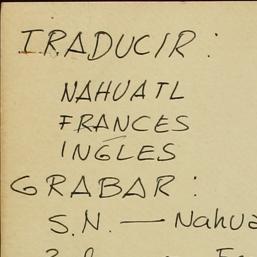 TRADUCIR:
NAHUATL
FRANCES
INGLES
GRABAR:
S.N. — Nahua